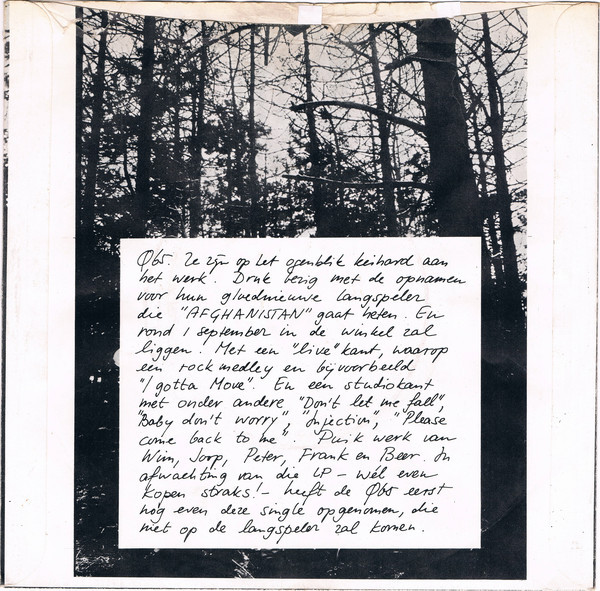 Øb5. Ze zijn op het ogenblik keihard aan
het werk. Druk bezig met de opnamen
voor hun gloednieuwe langspeler
die "AFGHANISTAN" gaat heten. En
rond 1 september in de winkel zal
liggen. Met een "live" kant, waarop
een rockmedley en bijvoorbeeld
"I gotta Move". En een studiokant
met onder andere "Don't let me fall",
"Baby don't worry", "Injection", "Please
come back to me". Puik werk van
Wim, Joop, Peter, Frank en Beer. In
afwachting van die LP – wèl even
kopen straks! – heeft de Øb5 eerst
nog even deze single opgenomen, die
niet op de langspeler zal komen.